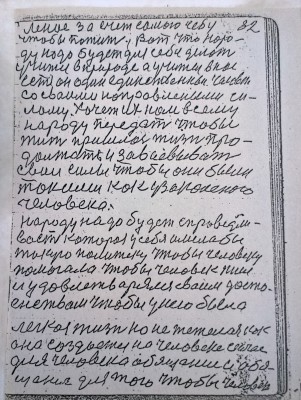 ление за счет самого себя 82
чтобы понять, вот что наро-
ду надо будет для себя делать
учить в природе а учитель в нас
есть он один единственный человек
со своими направлениями си-
лами. Хочет их нам всему
народу передать чтобы
жить пришлось жизнь про-
должать и завоевывать
свои силы чтобы они были
такими как у закаленного
человека.
народу надо будет справедли-
вость которая у себя имела бы
такую политику чтобы человеку
помогала чтобы человек жил
и удовлетворялся своим досто-
инством чтобы у него была
легкая жизнь но не тяжелая как
она создается на человеке сейчас
для человека обещание и обе-
щания для того чтобы человек